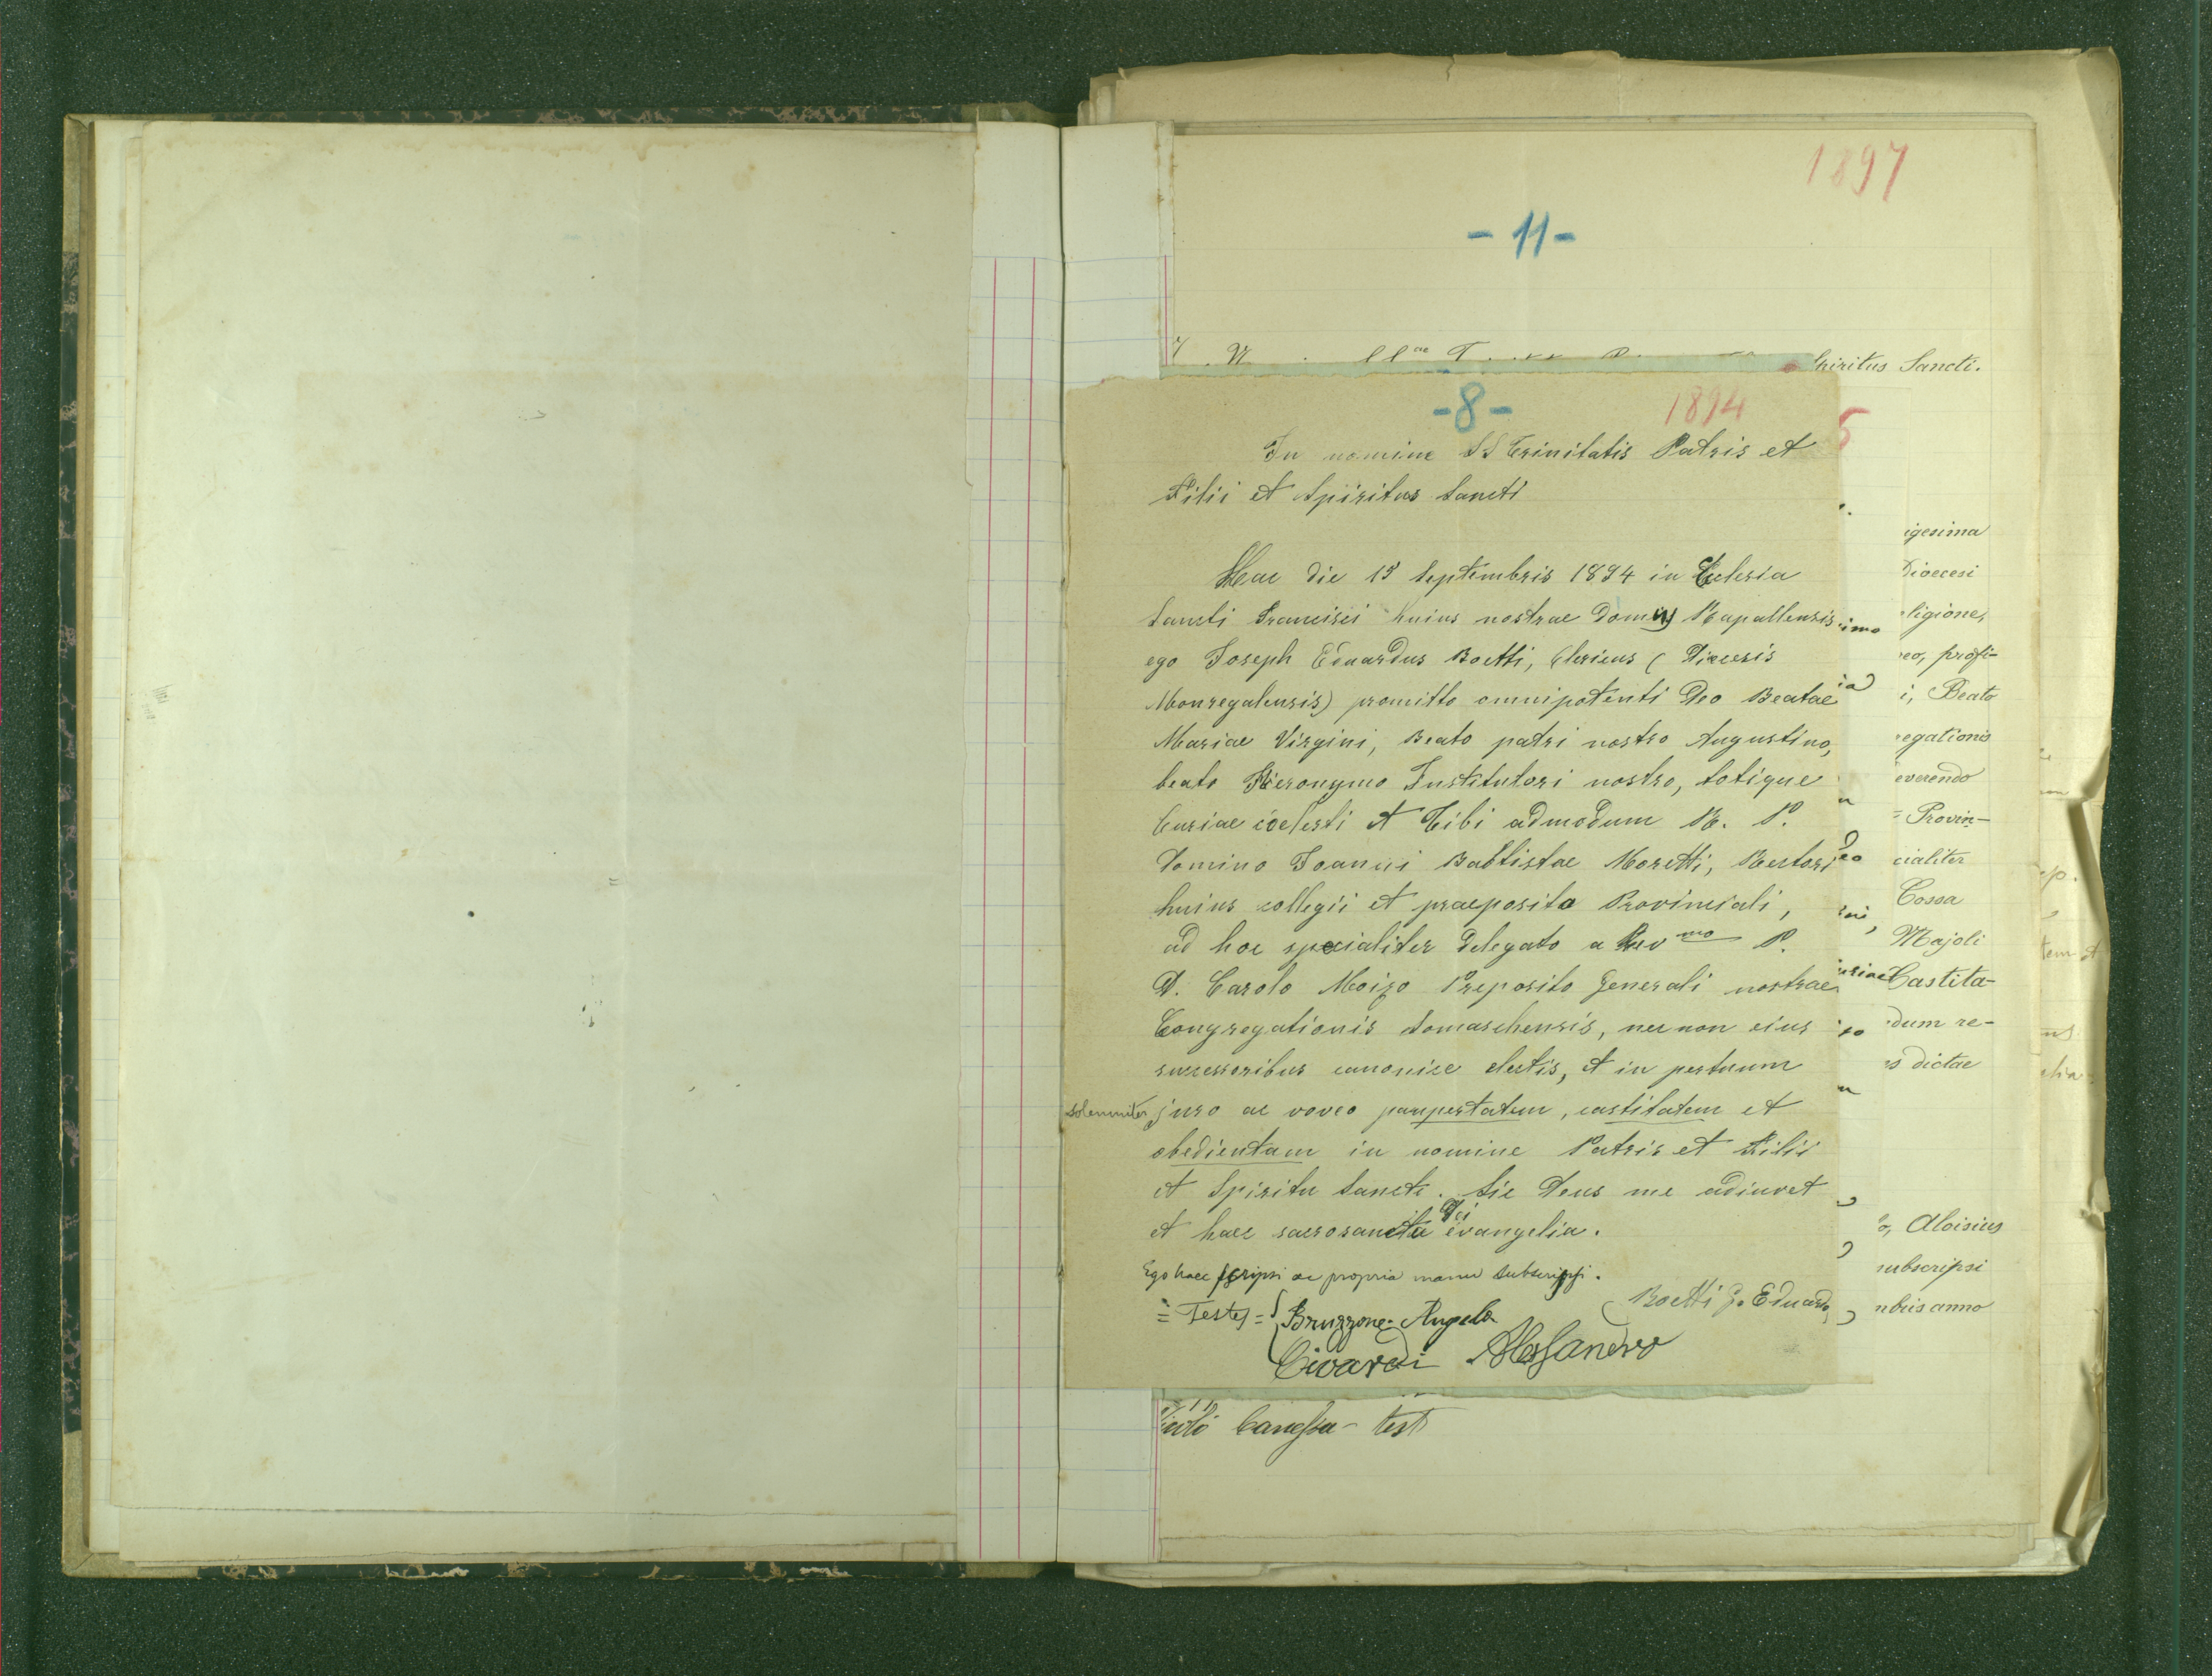 1897
- 11 -
Spiritus Sancti.
- 8 - 1894
In nomine SS Trinitatis Patris et
Filii et Spiritus Sancti
Hac die 15 Septembris 1894 in Eclesia
Sancti Francisci huius nostrae domus Rapallensis
ego Joseph Eduardus Boetti, Clericus (Diecesis
Monregalensis) promitto omnipotenti Deo Beatae
Mariae Virgini, Beato patri nostro Augustino,
beato Hieronymo Institutori nostro, totique
Curiae coelesti et Tibi admodum R. P.
Domino Joanni Babtistae Moretti, Rectori
huius collegii et praeposito Provinciali,
ad hoc specialiter delegato a Rev mo P.
D. Carolo Moizo Preposito Generali nostrae
Congregationis Somaschensis, nec non eius
successoribus canonice electis, et in pertuum
solemniter juro ac voveo paupertatem, castitatem et
obedientam in nomine Patris et Filii
et Spiritu Sancti. Sic Deus me adiuvet
et haec sacrosancta Dei evangelia.
Ego haec scripsi ac propria manu subscripsi.
Boetti G. Eduardo
= Testes = Bruzzone Angelo
Civardi Alessandro
igesima
Dioecesi
ligione,
eo, profi-
i, Beato
egationis
everendo
= Provin-
cialiter
Cossa
Majoli
Castita-
dum re-
s dictae
o, Aloisius
subscripsi
mbris anno
Canessa - test